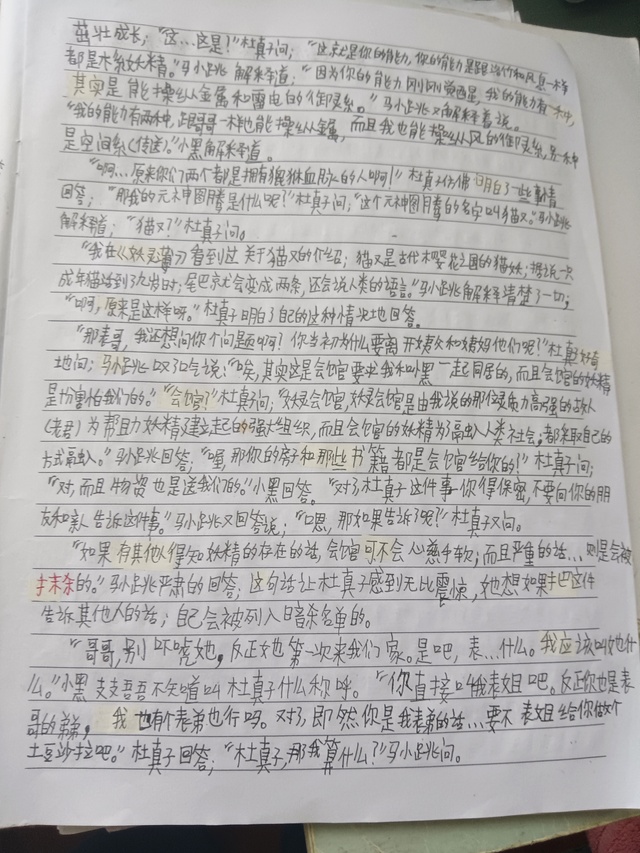 茁壮成长；“这…这是？”杜真子问；“这就是你的能力，你的能力是跟洛竹和风息一样
都是木系妖精。”马小跳解释道；“因为你的能力刚刚觉醒，我的能力有一种，
其实是能操纵金属和雷电的御灵系。”马小跳又解释着说。
“我的能力有两种，跟哥哥一样也能操纵金属，而且我也能操纵风的御灵系，另一种
是空间系（传送）。”小黑解释道。
“啊…原来你们两个都是拥有猊猻血脉的人啊！”杜真子仿佛明白了一些事情
回答；“那我的元神图腾是什么呢？”杜真子问；“这个元神图腾的名字叫猫又。”马小跳
解释道；“猫又？”杜真子问。
“我在《妖灵簿》看到过关于猫又的介绍；猫又是古代木樱花之国的猫妖；据说一只
成年猫活到九岁时；尾巴京就会变成两条，还会说人类的语言。”马小跳解释清楚了一切；
“啊，原来是这样呀。”杜真子明白了自己的这种情况地回答。
“那表哥，我还想问你个问题啊？你当初为什么要离开姨父和姨妈他们呢？”杜真子好奇
地问；马小跳叹了口气说；“唉，其实这是会馆要求我和小黑一起同居的，而且会馆的妖精
是怕害怕我们的。”“会馆？”杜真子问；“妖灵会馆，妖灵会馆是由我说的那位灵质力高强的故人
（老君）为帮助妖精建立起的强大组织，而且会馆的妖精为了融入人类社会，都采取自己的
方式融入。”马小跳回答；“喔，那你的房子和那些书籍都是会馆给你的！”杜真子问；
“对，而且物资也是送我们的。”小黑回答。“对了杜真子这件事你得保密，不要向你的朋
友和亲人告诉这件事。”马小跳又回答说；“嗯，那如果告诉了呢？”杜真子又问。
“如果有其他人得知妖精的存在的话，会馆可不会心慈手软；而且严重的话…则是会被
抹杀的。”马小跳严肃的回答；这句话让杜真子感到无比震惊，她想如果把这件
告诉其他人的话；自己会被列入暗杀名单的。
“哥哥，别吓唬她，反正她也第一次来我们家。是吧，表…什么。我应该叫她什
么。”小黑支支吾吾不知道叫杜真子什么称呼。“你直接叫我表姐吧。反正你也是表
哥的弟弟，我也有个表弟也行吗。对了即然你是我表弟的话…要不表姐给你做个
土豆沙拉吧。”杜真子回答；“杜真子，那我算什么？”马小跳问。